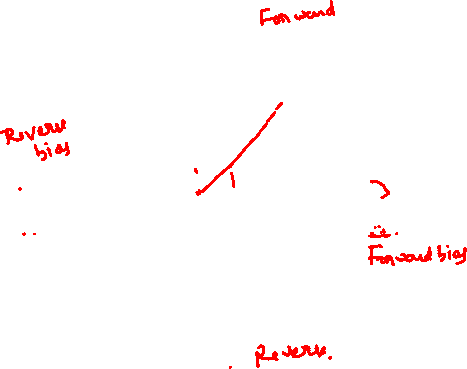 Forward
Reverse
bias
Forward bias
Reverse.